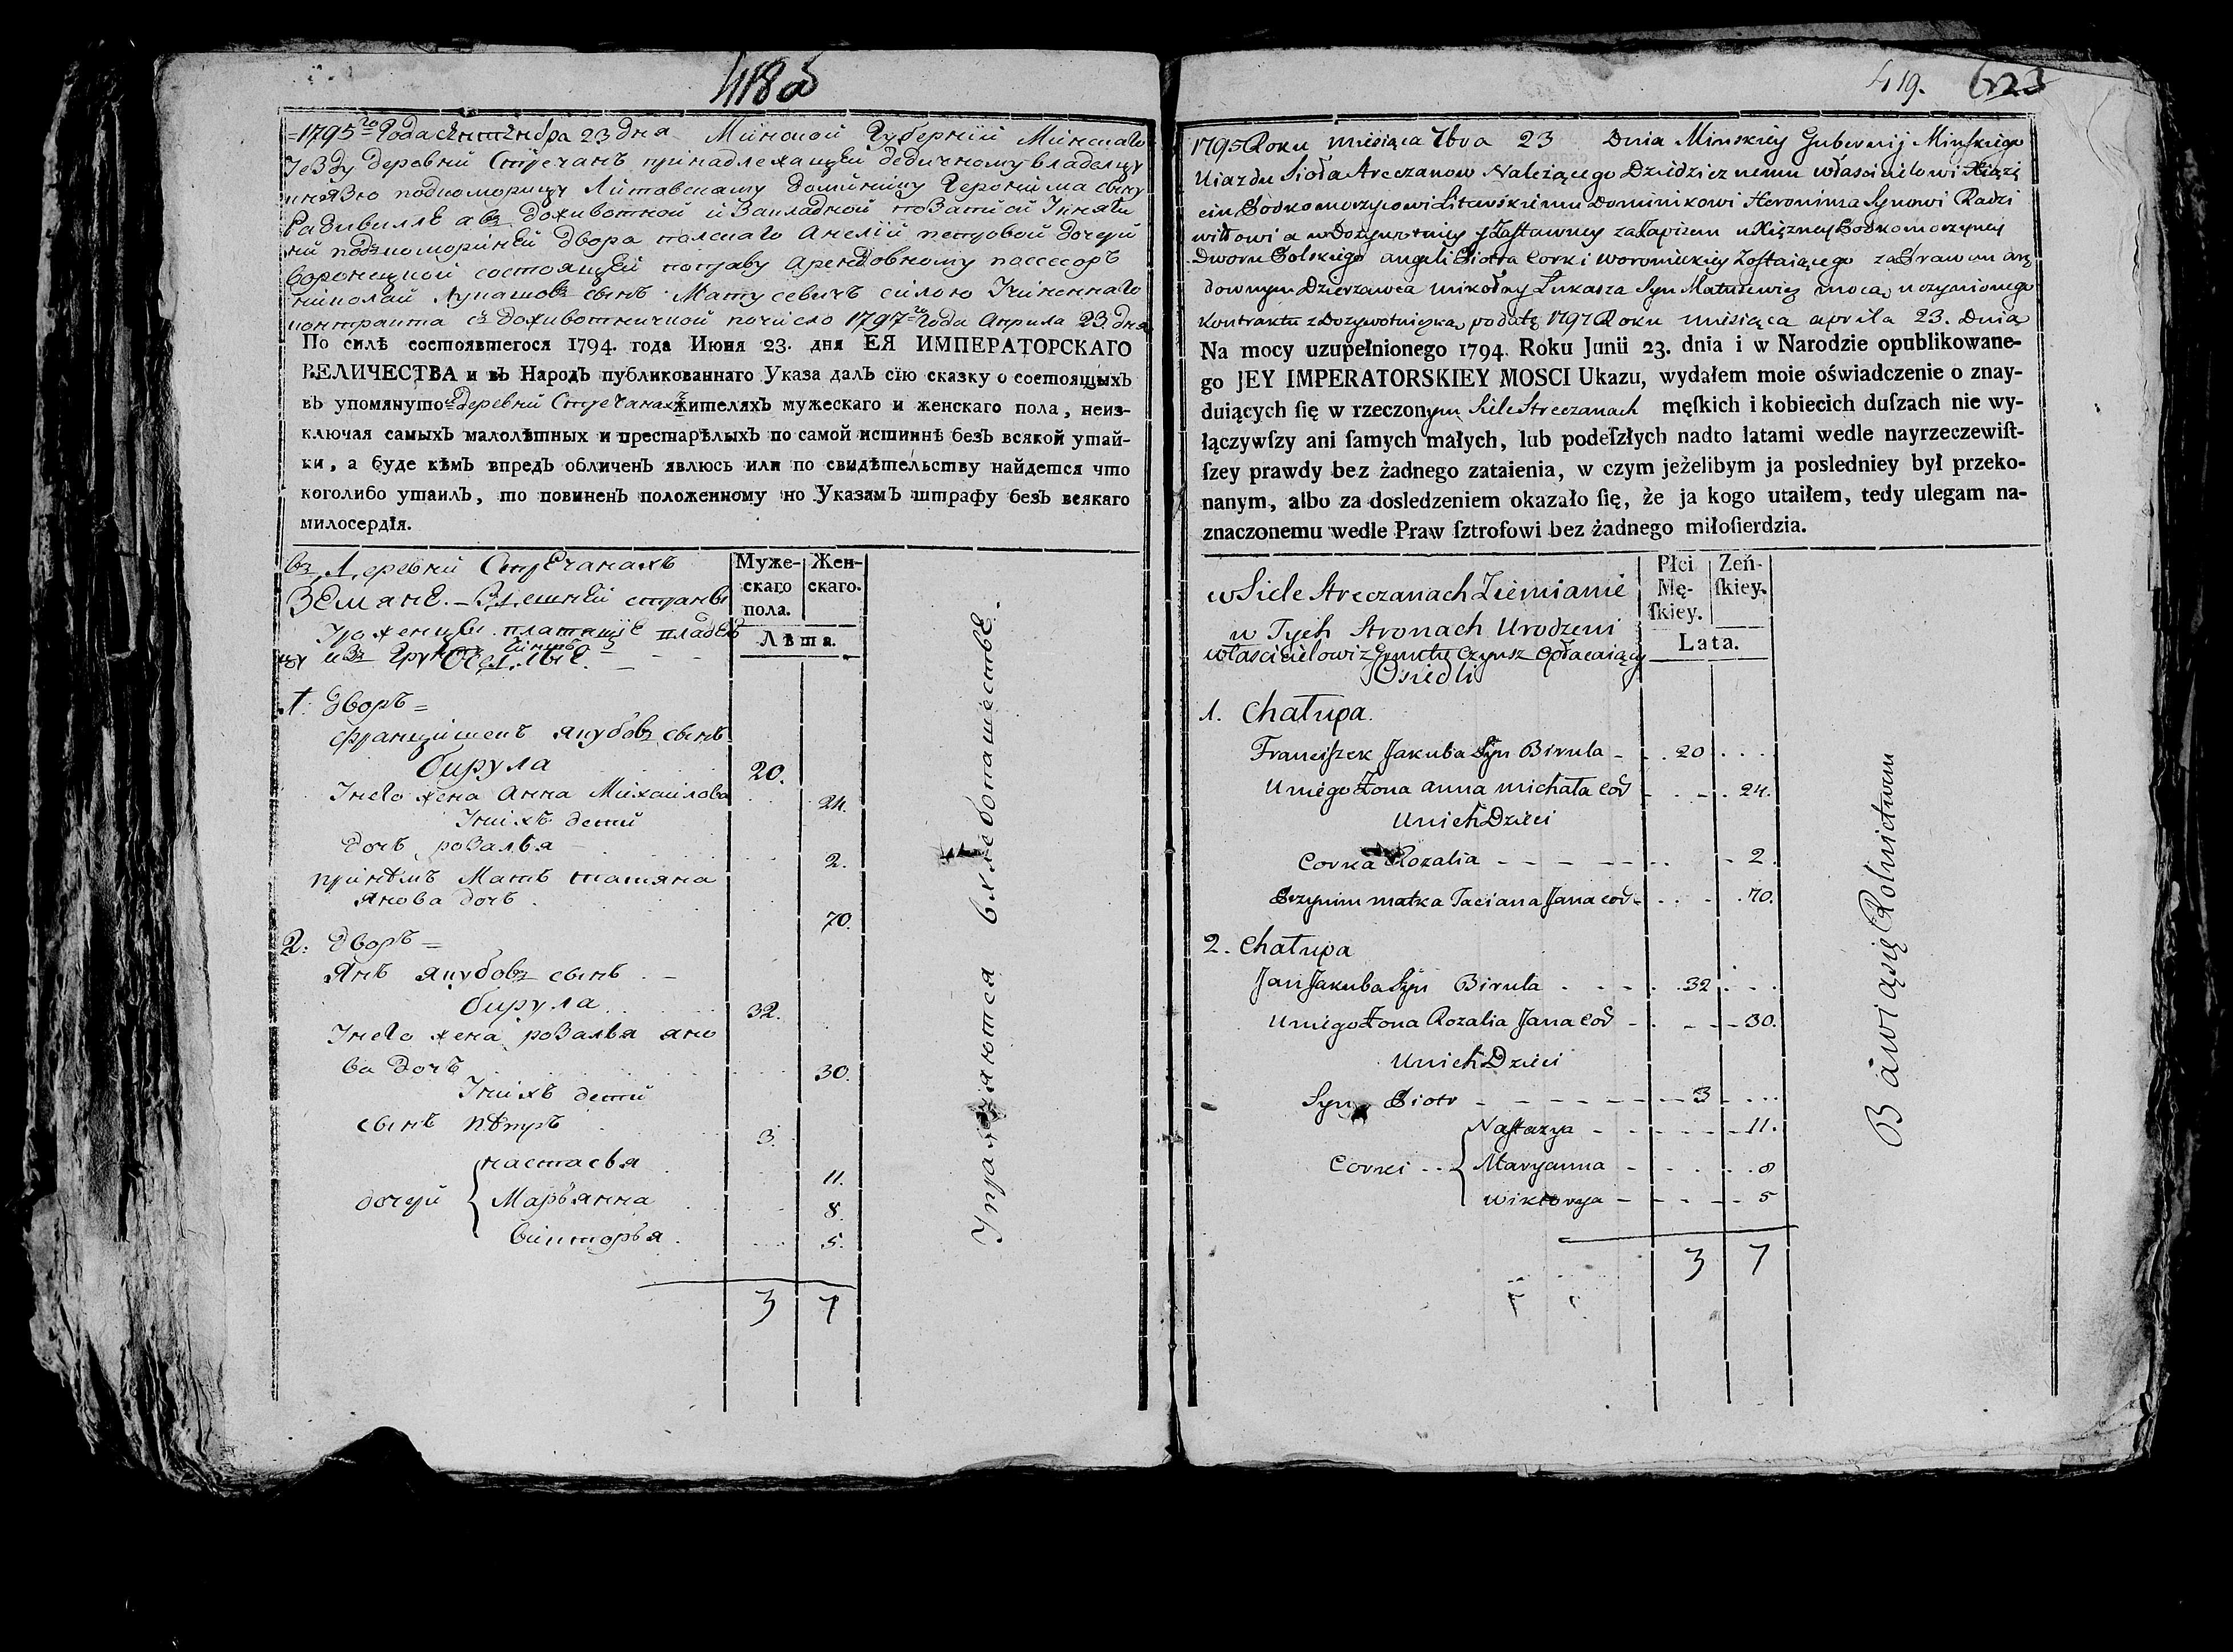 418 об
=1795го Года Сентебра 23 дня Минской Губерніи Минскаго
уезду деревни Стречанъ принадлежащей дедичному владелцу
князю подкоморищу Литовскому доминику Героніма сыну
Радивиллѣ а въ доживотной и Закладной позаписи у княги
ни подкоморіней двора полскаго Анелій петровой дочери
воронецкой состоящей поправу Арендовному пассесоръ
николай лукашовъ сынъ Матусевичъ силою учиненнаго
контракта съ доживотничкой почисло 1797го Года Априла 23 дня
По силѣ состоявшегося 1794. года Июня 23. дня ЕЯ ИМПЕРАТОРСКАГО
ВЕЛИЧЕСТВА и въ Народъ публикованнаго Указа далъ сїю сказку о состоящыхъ
въ упомянутой деревни Стречанахъ жителяхъ мужескаго и женскаго пола, неиз-
ключая самыхъ малолѣтныхъ и престарѣлыхъ по самой истиннѣ безъ всякой утай-
ки, а буде кѣмъ впредъ обличенъ явлюсь или по свидѣтельству найдется что
коголибо утаилъ, то повиненъ положенному по Указамъ штрафу безъ всякаго
милосердїя.
въ деревни Стречанахъ
Земяне. – Здешней страны
Муже-
скаго
пола.
Жен-
скаго.
уроженцы платящіе владел
цу изъ Грунту чиншъ
Оседлые.
Лѣта.
1. дворъ =
францишекъ якубовъ сынъ
бирула 20.
у него жена Анна Михайлова 24.
у нихъ дети
дочь розалья 2.
при нѣмъ Мать татяна
янова дочь 70.
2. дворъ =
Янъ якубовъ сынъ
бирула 32.
у него жена розалья яно
ва дочь 30.
у нихъ дети
сынъ пѣтръ 3.
дочери { настасья 11.
Марьянна 8.
викторья 5.
3 7
упражняются в хлебопашестве.
419. 623
1795 Roku miesiąca 7bra 23 Dnia Minskiey Gubernij Minskiego
Uiazdu Sioła Streczanow Należącego Dziedzicznemu własicielowi Xiąże
ciu Podkomorzycowi Litewskiemu Dominikowi Heronima Synowi Radzi
wiłłowi a w Dożywotniey y Zastawney za Zapisem u Xiężney Podkomorzyney
Dworu Polskiego Angeli Piotra Corki Woronieckiey Zostaiącego za Prawem arę
downym Dzierżawca Mikołay Łukasza Syn Matusewicz mocą uczynionego
Kontraktu z Dożywotniczką podatę 1797 Roku miesiąca apryla 23. Dnia
Na mocy uzupełnionego 1794. Roku Junii 23. dnia i w Narodzie opublikowane-
go JEY IMPERATORSKIEY MOSCI Ukazu, wydałem moie oświadczenie o znay-
duiących ſię w rzeczonym Siele Streczanach męſkich i kobiecich duſzach nie wy-
łączywſzy ani ſamych małych, lub podeſzłych nadto latami wedle nayrzeczewiſt-
ſzey prawdy bez żadnego zataienia, w czym jeżelibym ja posledniey był przeko-
nanym, albo za dosledzeniem okazało ſię, że ja kogo utaiłem, tedy ulegam na-
znaczonemu wedle Praw ſztrofowi bez żadnego miłoſierdzia.
w Siele Streczanach Ziemianie
Płci
Mę-
ſkiey.
Zeń-
ſkiey.
w Tych Stronach Urodzeni
własicielowi z Gruntu Czynsz opłacaiący
Osiedli
Lata.
1. Chałupa.
Franciszek Jakuba Syn Birula 20
U niego Żona Anna Michała Cor 24.
U nich Dzieci
Corka Rozalia 2.
Przynim matka Taciana Jana cor 70.
2. Chałupa
Jan Jakuba Syn Birula 32
U niego Żona Rozalia Jana Cor 30.
U nich Dzieci
Syn Piotr 3
Corki { Nastazya 11.
Maryanna 8
Wiktorya 5
3 7
Bawią się Rolnictwem